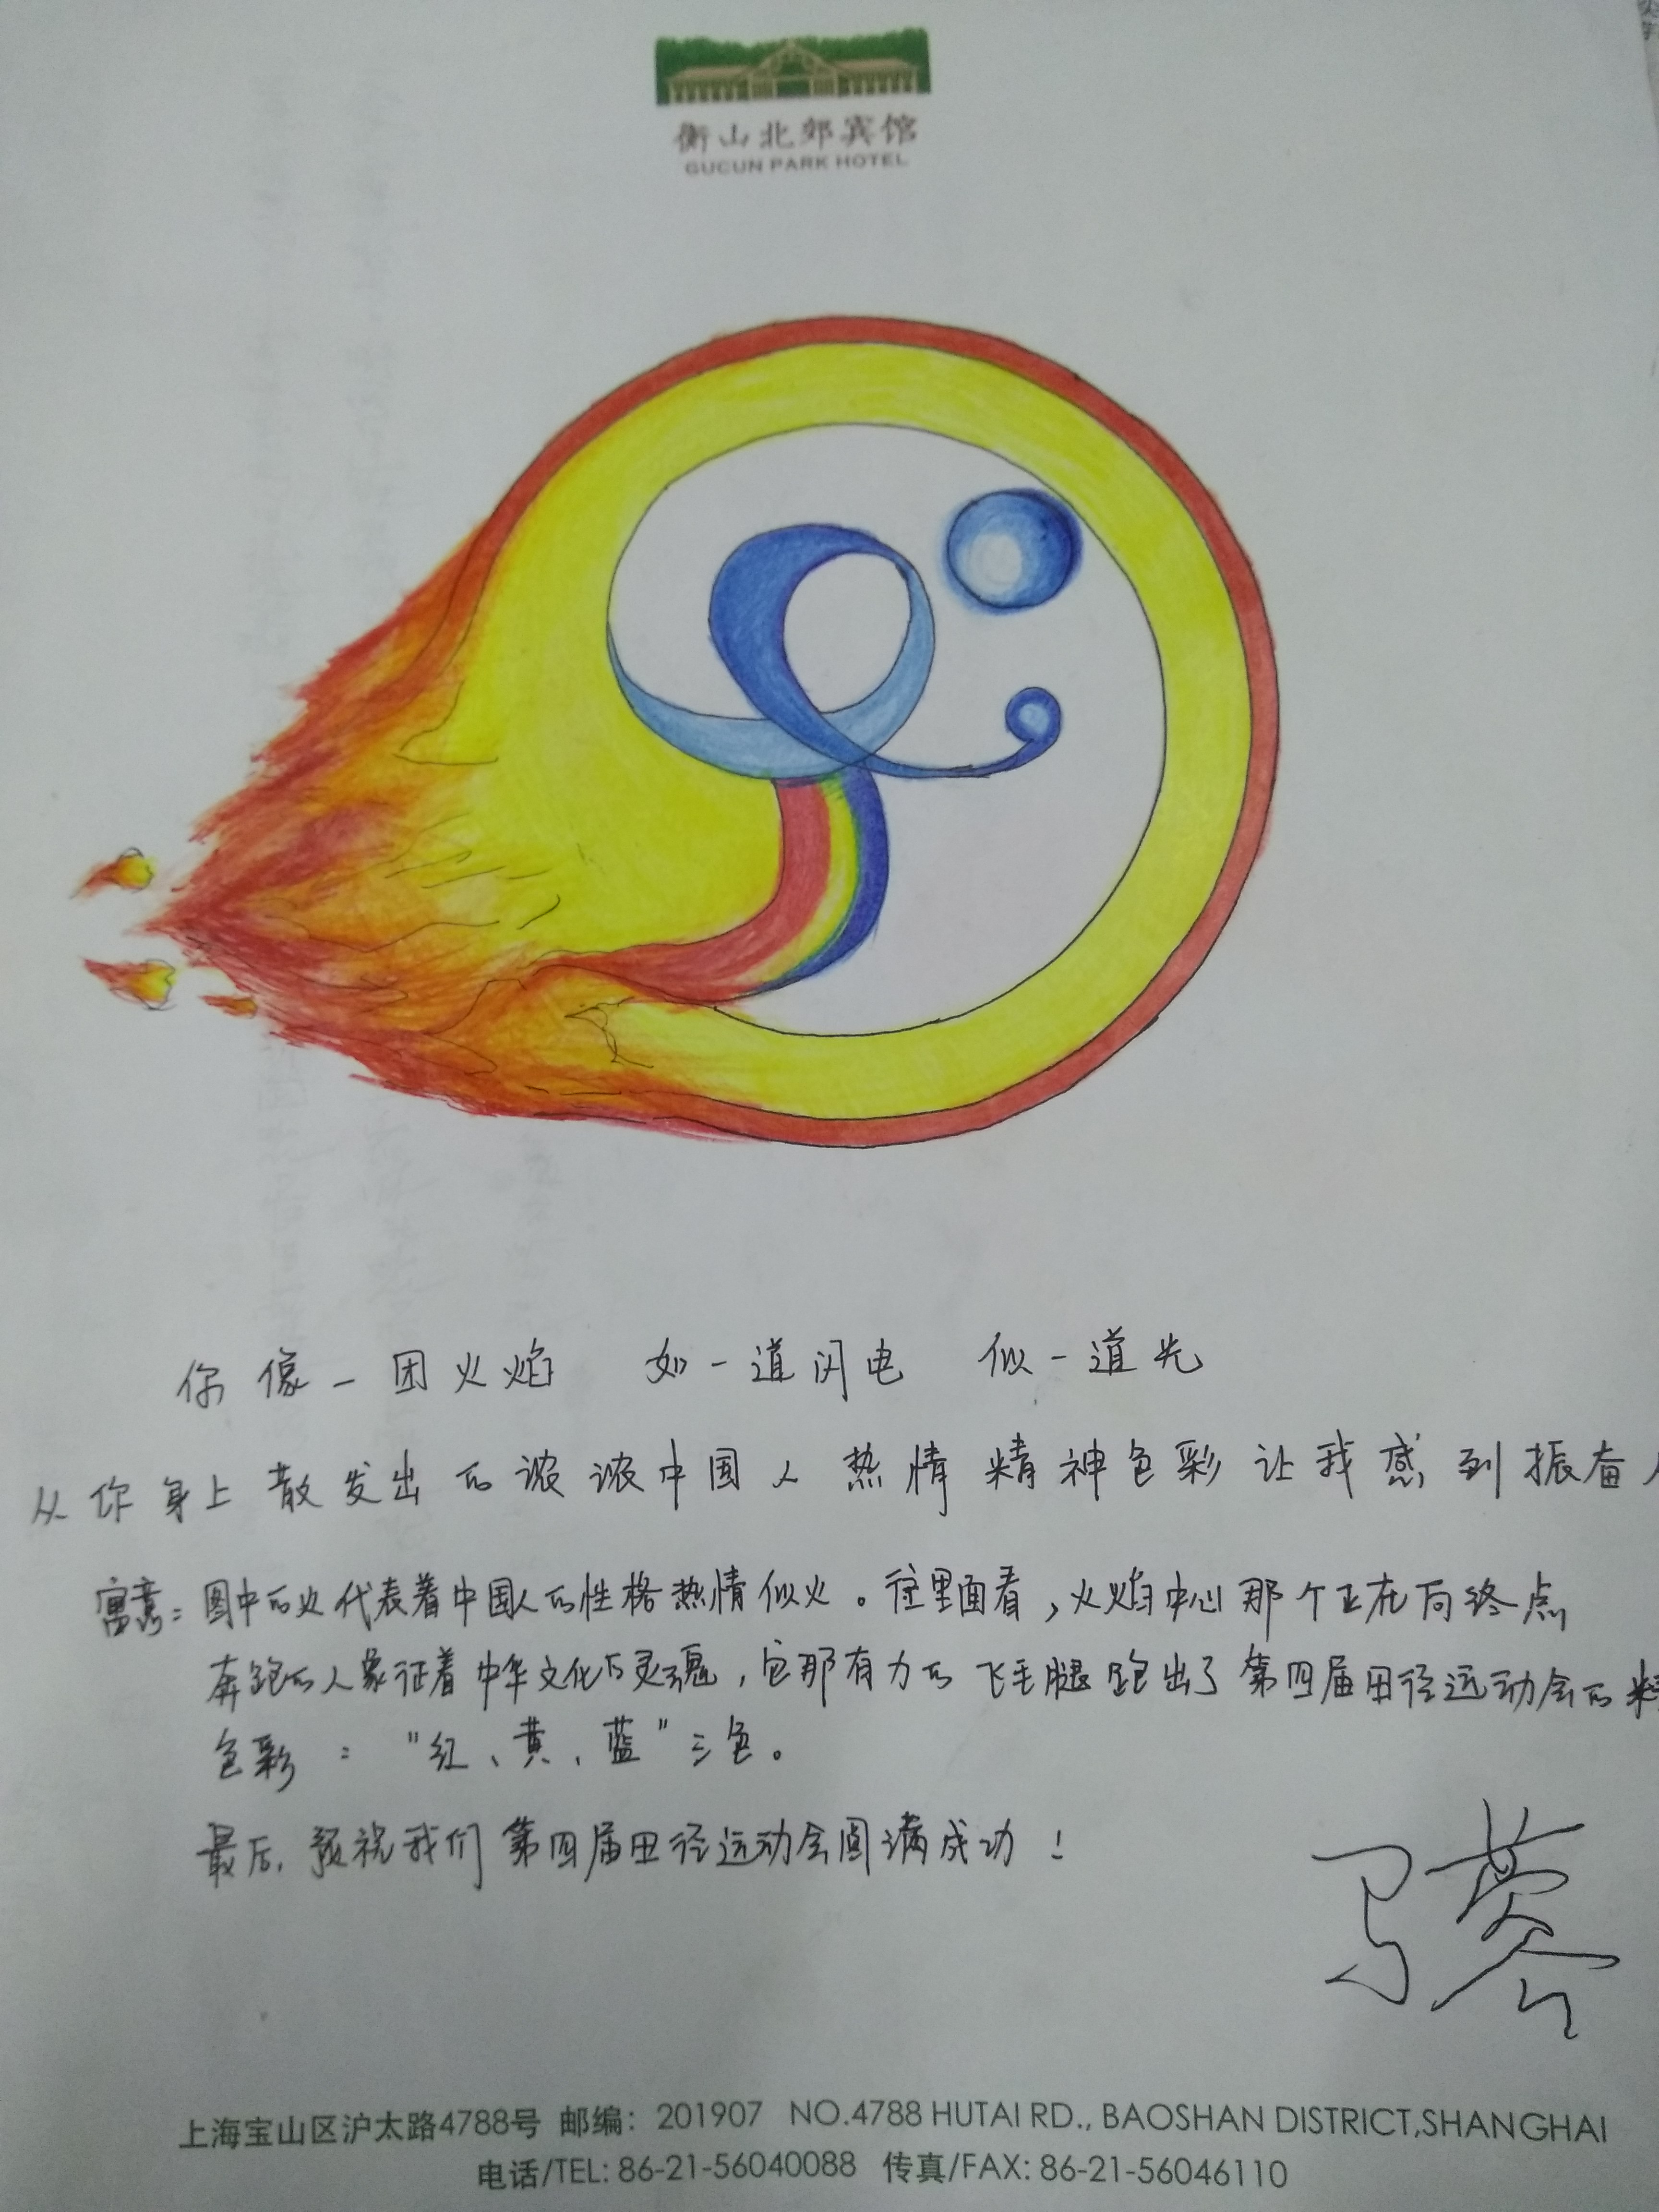 衡山北郊宾馆
GUCUN PARK HOTEL
你像一团火焰 如一道闪电 似一道光
从你身上散发出的浓浓中国人热情精神色彩让我感到振奋
寓意：图中的火代表着中国人的性格热情似火。往里面看，火焰中心那个正在向终点
奔跑的人象征着中华文化的灵魂，它那有力的飞毛腿跑出了第四届田径运动会的
色彩："红、黄、蓝"三色。
最后，预祝我们第四届田径运动会圆满成功！
上海宝山区沪太路4788号 邮编：201907 NO.4788 HUTAI RD., BAOSHAN DISTRICT,SHANGHAI
电话/TEL: 86-21-56040088 传真/FAX: 86-21-56046110